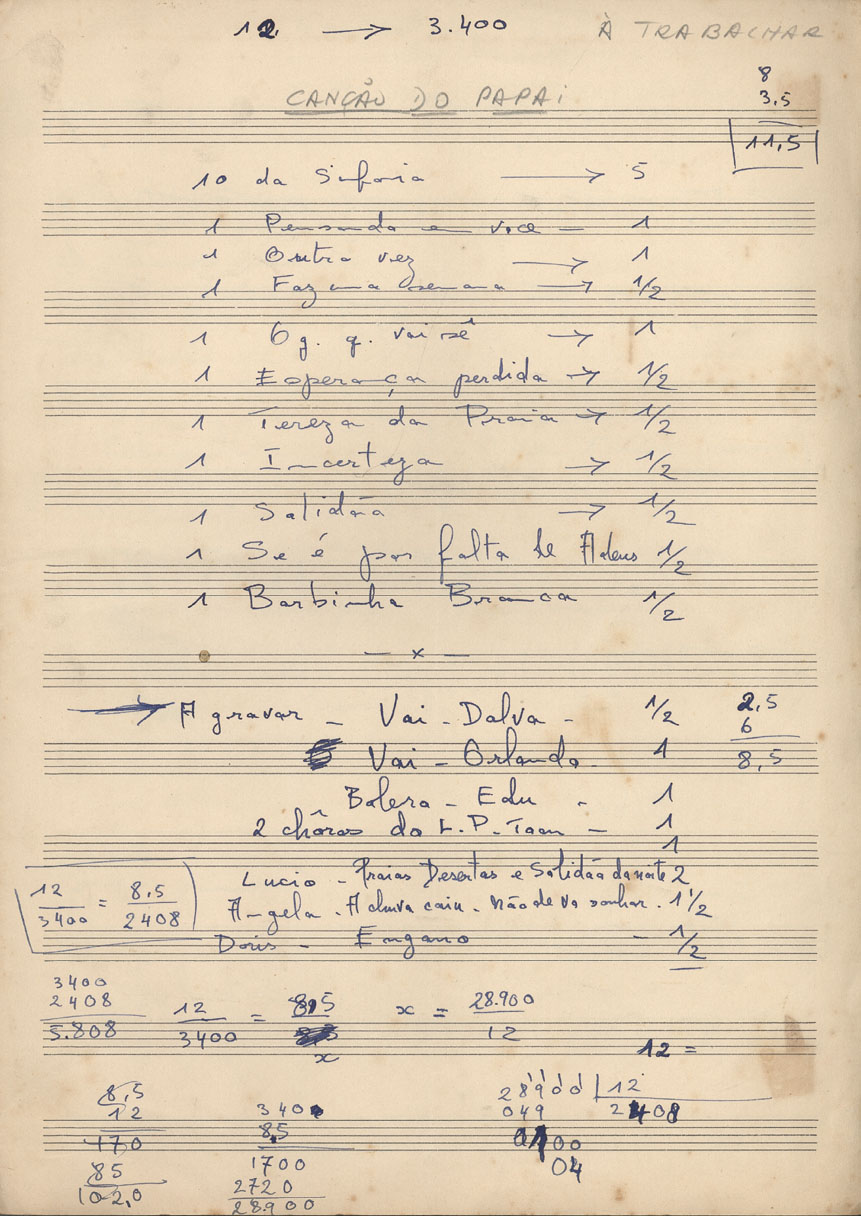 12 → 3.400 À TRABALHAR
CANÇÃO DO PAPAi
8
3,5
11,5
10 da Sinfonia → 5
1 Pensando em você — 1
1 Outra vez → 1
1 Faz uma semana → 1/2
1 O q. q. vai sê → 1
1 Esperança perdida → 1/2
1 Tereza da Praia → 1/2
1 Incerteza → 1/2
1 Solidão → 1/2
1 Se é por falta de Adeus 1/2
1 Barbinha Branca 1/2
— x —
→ A gravar — Vai - Dalva - 1/2
2,5
6
8,5
Vai - Orlando - 1
Bolero - Edu - 1
2 chôros do L.P. - Tom - 1
1
Lucio - Praias Desertas e Solidão da noite 2
Angela - A chuva caiu - Não devo sonhar - 1 1/2
Doris - Engano - 1/2
12/3400 = 8,5/2408
3400
2408
5.808
12/3400 = 8,5/x
x = 28.900/12
12 =
8,5
12
170
85
102,0
3400
8,5
1700
2720
28.900
28900 | 12
049 2408
0100
04